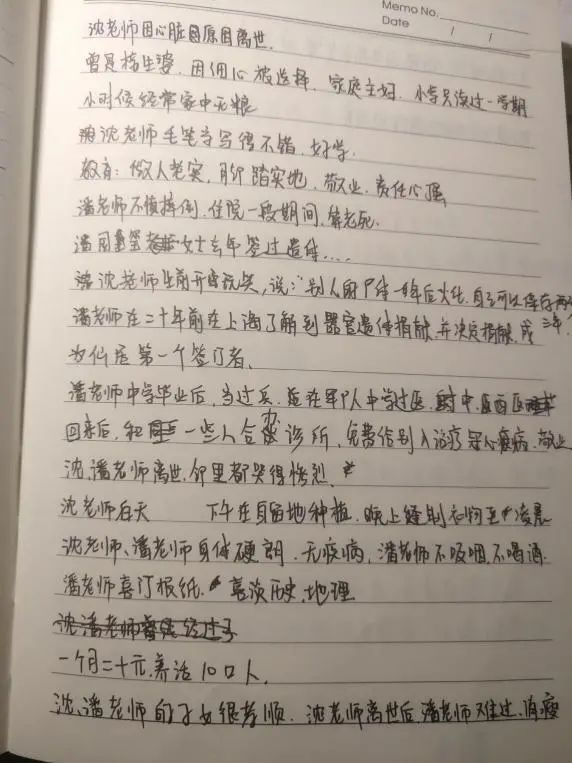 Memo No.
Date / /
沈老师因心脏原因离世.
曾是接生婆，因细心被选择，家庭主妇，小学只读过一学期
小时候经常家中无粮
沈老师毛笔字写得不错，好学.
教育：做人老实，脚踏实地，敬业，责任心强
潘老师不慎摔倒，住院一段期间，算老死.
女士去年签过遗体....
沈老师生前开玩笑，说：“别人的尸体一年后火化，自己可以保存两
潘老师在二十年前在上海了解到器官遗体捐献，并决定捐献，成 三年
为仙居第一个签订者.
潘老师中学毕业后，当过兵，在军人中学过医，中西医
回来后，和一些人合办诊所，免费给别人治疗冠心疾病，敬业
沈、潘老师离世，邻里都哭得惨烈.
沈老师白天 下午在自留地种植，晚上缝制衣物至凌晨
沈老师、潘老师身体硬朗，无疾病，潘老师不吸烟，不喝酒.
潘老师喜订报纸，喜谈历史、地理
沈潘老师曾经过
一个月二十元，养活10口人.
沈、潘老师的子女很孝顺. 沈老师离世后，潘老师难过，消瘦